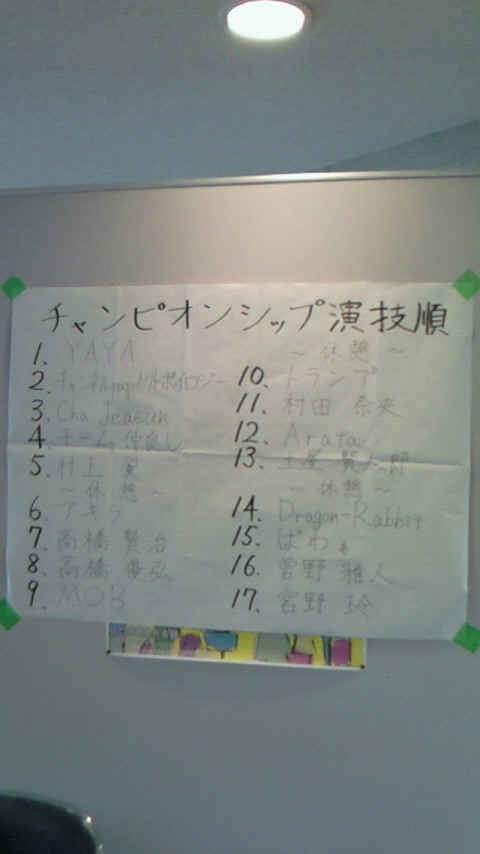 チャンピオンシップ演技順
1. YAYA
2. チャンネル
3. Cha Jeaeun
4. チーム仲良し
5. 村上
～休憩～
6. アキラ
7. 高橋 賢治
8. 高橋 優弘
9. MOB
～休憩～
10. トランプ
11. 村田 奈央
12. Arata
13. 土屋 賢太郎
～休憩～
14. Dragon-Rabbit
15. ぱわぁ
16. 菅野 雅人
17. 宮野 玲